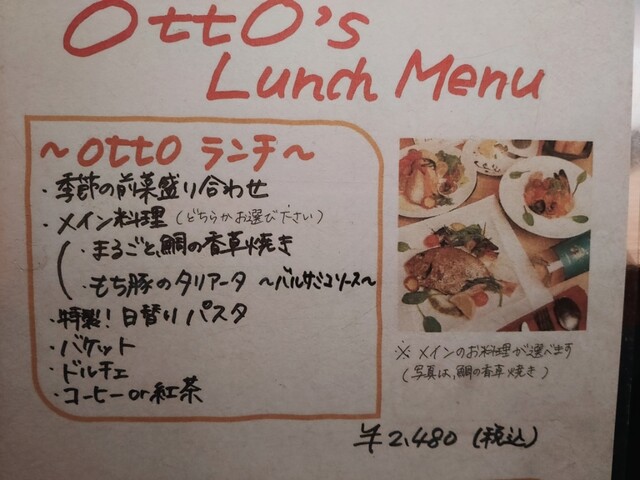 OttO's
Lunch Menu
～OttO ランチ～
・季節の前菜盛り合わせ
・メイン料理（どちらかお選び下さい）
・まるごと、鯛の香草焼き
・もち豚のタリアータ ～バルサミコソース～
・特製！日替り パスタ
・バケット
・ドルチェ
・コーヒー or 紅茶
※ メインのお料理が選べます
（写真は、鯛の香草焼き）
¥2,480（税込）